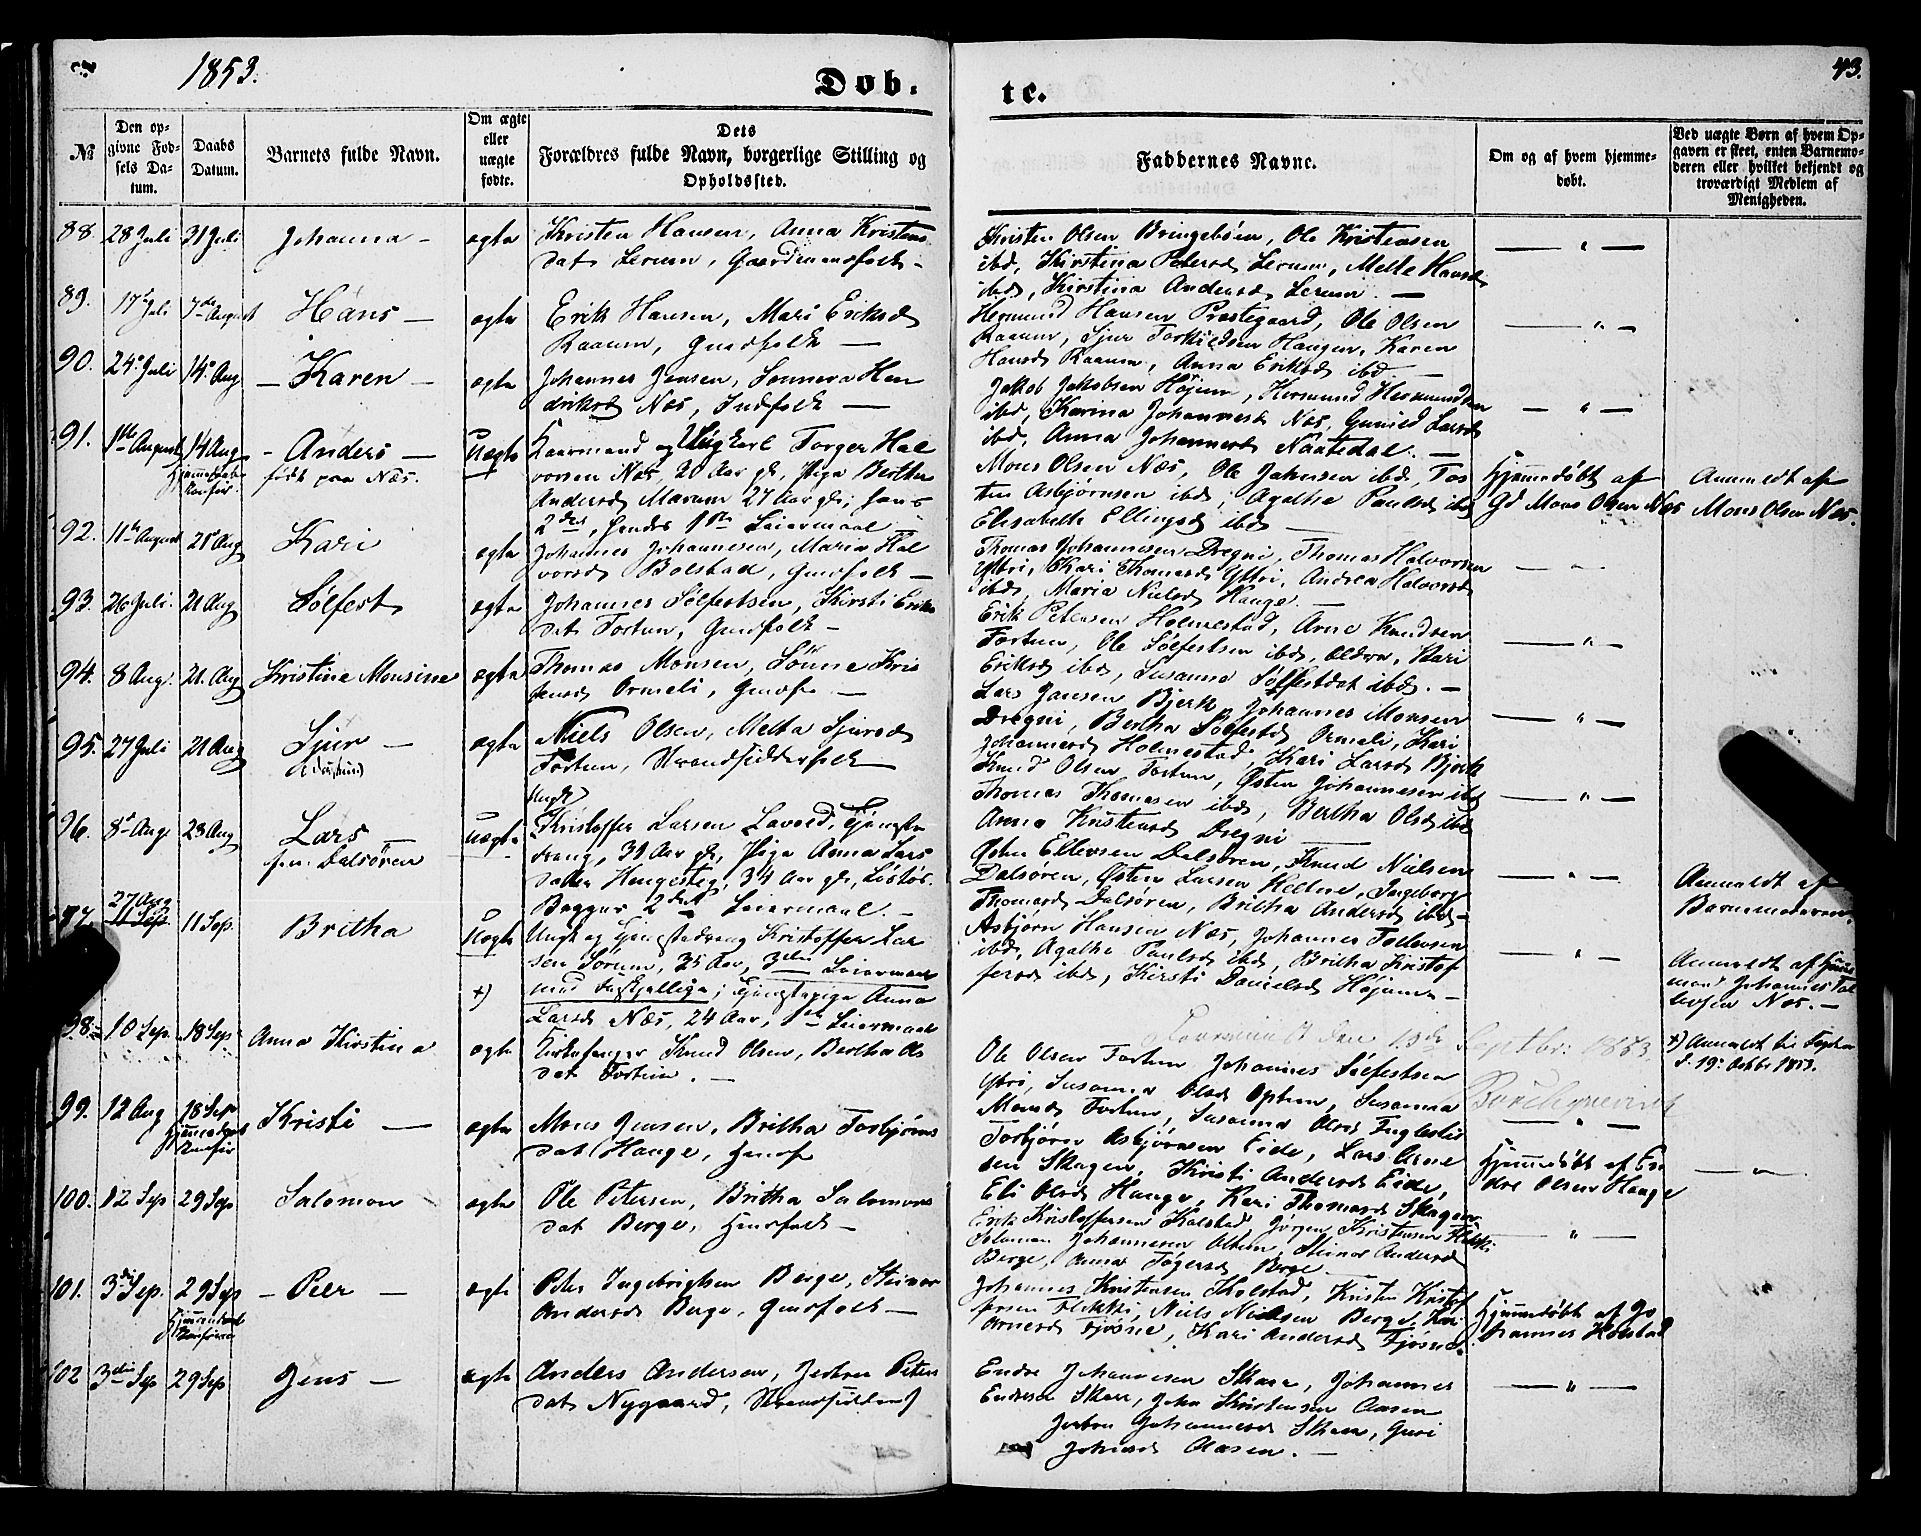 1853.
43.
Døb-
te.
№
Den op-
givne Fød-
sels Da-
tum.
Daabs
Datum.
Barnets fulde Navn.
Om ægte
eller
uægte
fødte.
Dets
Forældres fulde Navn, borgerlige Stilling og
Opholdssted.
Faddernes Navne.
Om og af hvem hjemme-
døbt.
Ved uægte Børn af hvem Op-
gaven er skeet, enten Barnemo-
deren eller hvilket bekjendt og
troværdigt Medlem af
Menigheden.
88. 28 Juli 31 Juli Johanna — ægte
Kristen Hansen, Anna Kristens
dat. Lerum, Gaardmandsfolk —
Kristen Olsen Bringebøen, Ole Kristensen
ibd, Kirstina Petersd Lerum, Mette Hansd
ibd, Kirstina Andersd Lerum. —
— " —
89. 17 Juli 7de August Hans — ægte
Erik Hansen, Mari Eriksd
Raaum, Gmdfolk —
Hermund Hansen Prestegaard, Ole Olsen
Raaum, Sjur Torkildsen Haugen, Karen
Hansd Raaum, Anna Eriksd ibd —
— " —
90. 24 Juli 14 Aug — Karen — ægte
Johannes Jensen, Sonneva Hen
driksd Næs, Indfolk —
Jakob Jakobsen Højum, Hermund Hermundsen
ibd, Karina Johannesd Næs, Gunild Larsd
ibd, Anna Johannesd Naatedal. —
— " —
91. 1ste August 14 Aug - Anders — Uægte
Hjemmedøbt
Konfir.
født paa Næs.
Gaarmand og Ungkarl Torger Hal
vorsen Næs, 20 Aar gl, Pige Bertha
Andersd Marum 27 Aar gl; hans
2det, hendes 1ste Leiermaal
Mons Olsen Næs, Ole Jahnsen ibd, Tos
ten Asbjørnsen ibd; Agathe Paulsd ibd
Elisabeth Ellingsd ibd —
Hjemmedøbt af
Gd Mons Olsen Næs
Anmeldt af
Mons Olsen Næs.
92. 11te August 21 Aug Kari ægte
Johannes Johannesen, Maria Hal
vorsd Bolstad, Gmdfolk —
Thomas Johannesen Dregni, Thomas Halvorsen
Yttri, Kari Thomasd Yttri, Andrea Halvorsd
ibd, Maria Nielsd Hauge. —
— " —
93. 26 Juli. 21 Aug Sølfest ægte
Johannes Sølfestsen, Kirsti Eriks
dat Fortun, Gmdfolk —
Erik Petersen Holmestad, Arne Knudsen
Fortun, Ole Sølfestsen ibd, Oldra, Kari
Eriksd ibd, Susanne Sølfestdat ibd. —
— " —
94. 8 Aug. 21. Aug Kristine Monsine ægte
Thomas Monsen, Sønne Kris
tensd Ormeli, Gmdf. —
Lars Jansen Bjerk, Johannes Monsen
Dregni, Bertha Sølfestd Ormeli, Kari
Johannesd Holmestad, Kari Larsd Bjerk
— " —
95. 27 Juli 21 Aug Sjur — ægte
Niels Olsen, Metta Sjursd
Fortun, Strandsidderfolk —
Knud Olsen Fortun, Østen Johannesen ibd
Thomas Thomasen ibd, Bertha Olsd ibd
Anna Kristensd Dregni —
— " —
96. 8de Aug 23 Aug Lars — uægte
fra Dalsøren
Ungk
Kristoffer Larsen Lavold, Tjeneste
dreng, 31 Aar gl, Pige Anna Lars
datter Hengesteg, 34 Aar gl,
Begges 2det Leiermaal. —
John Ellevsen Dalsøren, Knud Nielsen
Dalsøren, Østen Larsen Heltne, Ingeborg
Thomasd Dalsøren, Britha Andersd ibd —
— " —
Anmeldt af
Barnemoderen.
97. 27 Aug 11 Sep. Britha Uægte
11 Sep
Ungk og Tjenestedreng Kristoffer Lar
sen Sørum, 35 Aar, 3die Leiermaal
med forskjellige; Tjenestepige Anna
Larsd Næs, 24 Aar, 1ste Leiermaal
+)
Asbjørn Hansen Næs, Johannes Tollevsen
ibd, Agathe Paulsd ibd, Britha Kristof
fersd ibd, Kirsti Danielsd Højum —
— " —
Anmeldt af Huus
mand Johannes Tol
levsen Næs. —
den 13de Septbr: 1853.
98. 10 Sep. 18 Sep Anna Kirstina ægte
Kirkesanger Knud Olsen, Bertha Ols
dat Fortun. —
Ole Olsen Fortun Johannes Sølfestsen
Ytri, Susanna Olsd Optun, Susanna
Monsd Fortun, Susanna Olsd Fuglesteg
— " —
+) Anmeldt til Fogden
d. 19. Octbr 1853.
99. 12 Aug 18 Sep Kristi — ægte
Hjemmedøbt
Konfir
Mons Jensen, Britha Torbjørns
dat Hauge, Gmdf
Torbjørn Asbjørnsen Eide, Lars Arne
sen Skagen, Kristi Andersd Eide,
Eli Olsd Hauge, Kari Thomasd Skagen
Hjemmedøbt af En
dre Olsen Hauge
— " —
100. 12 Sep 29 Sep Salomon ægte
Ole Petersen, Britha Salomons
dat Berge, Gmdfolk —
Erik Kristoffersen Kolstad, Jørgen Kristensen Flekki
Salomon Johannesen Oltun, Steinor Andersd
Berge, Anna Tøgersd Berge —
— " —
101. 3die Sep. 29 Sep — Peer — ægte
Hjemmedøbt
Konfirm
Peter Ingebrigtsen Berge, Steinor
Andersd Berge, Gmdfolk —
Johannes Kristensen Kolstad, Kristen Kristof
fersen Flekki, Niels Nielsen Berge, Kari
Arnesd Fjøsne, Kari Andersd Fjøsne
Hjemmedøbt af Jo
hannes Kolstad
102 3die Sep 29 Sep Jens — ægte
Anders Andersen, Jertru Peters
dat Nygaard, Strandsidderf
Endre Johannesen Skaar, Johannes
Endresen Skaar, John Kristensen Aasen
Jertru Johannesd Skaar, Guri
Johnsd Aasen. —
— " —